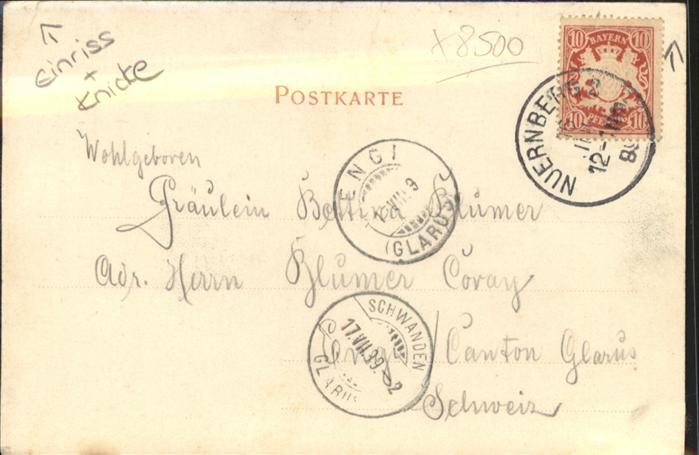 Einriss
+
Knicke
x8500
BAYERN
10 10
10 PFENNIG 10
NUERNBERG 2
12-1
POSTKARTE
Wohlgeboren
Fräulein Bettina Blumer
ENGI
VII
(GLARUS)
Adr. Herrn Blumer Coray
SCHWANDEN
17.VII.99. 2
GLARUS
Engi/Canton Glarus
Schweiz